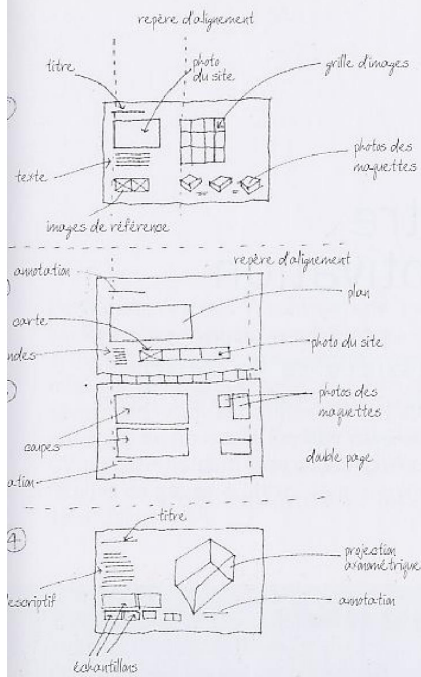 repère d'alignement
photo
du site
titre
grille d'images
texte
photos des
maquettes
images de référence
repère d'alignement
annotation
plan
carte
ndes
photo du site
photos des
maquettes
coupes
double page
ation
4
titre
projection
axonométrique
descriptif
annotation
échantillons